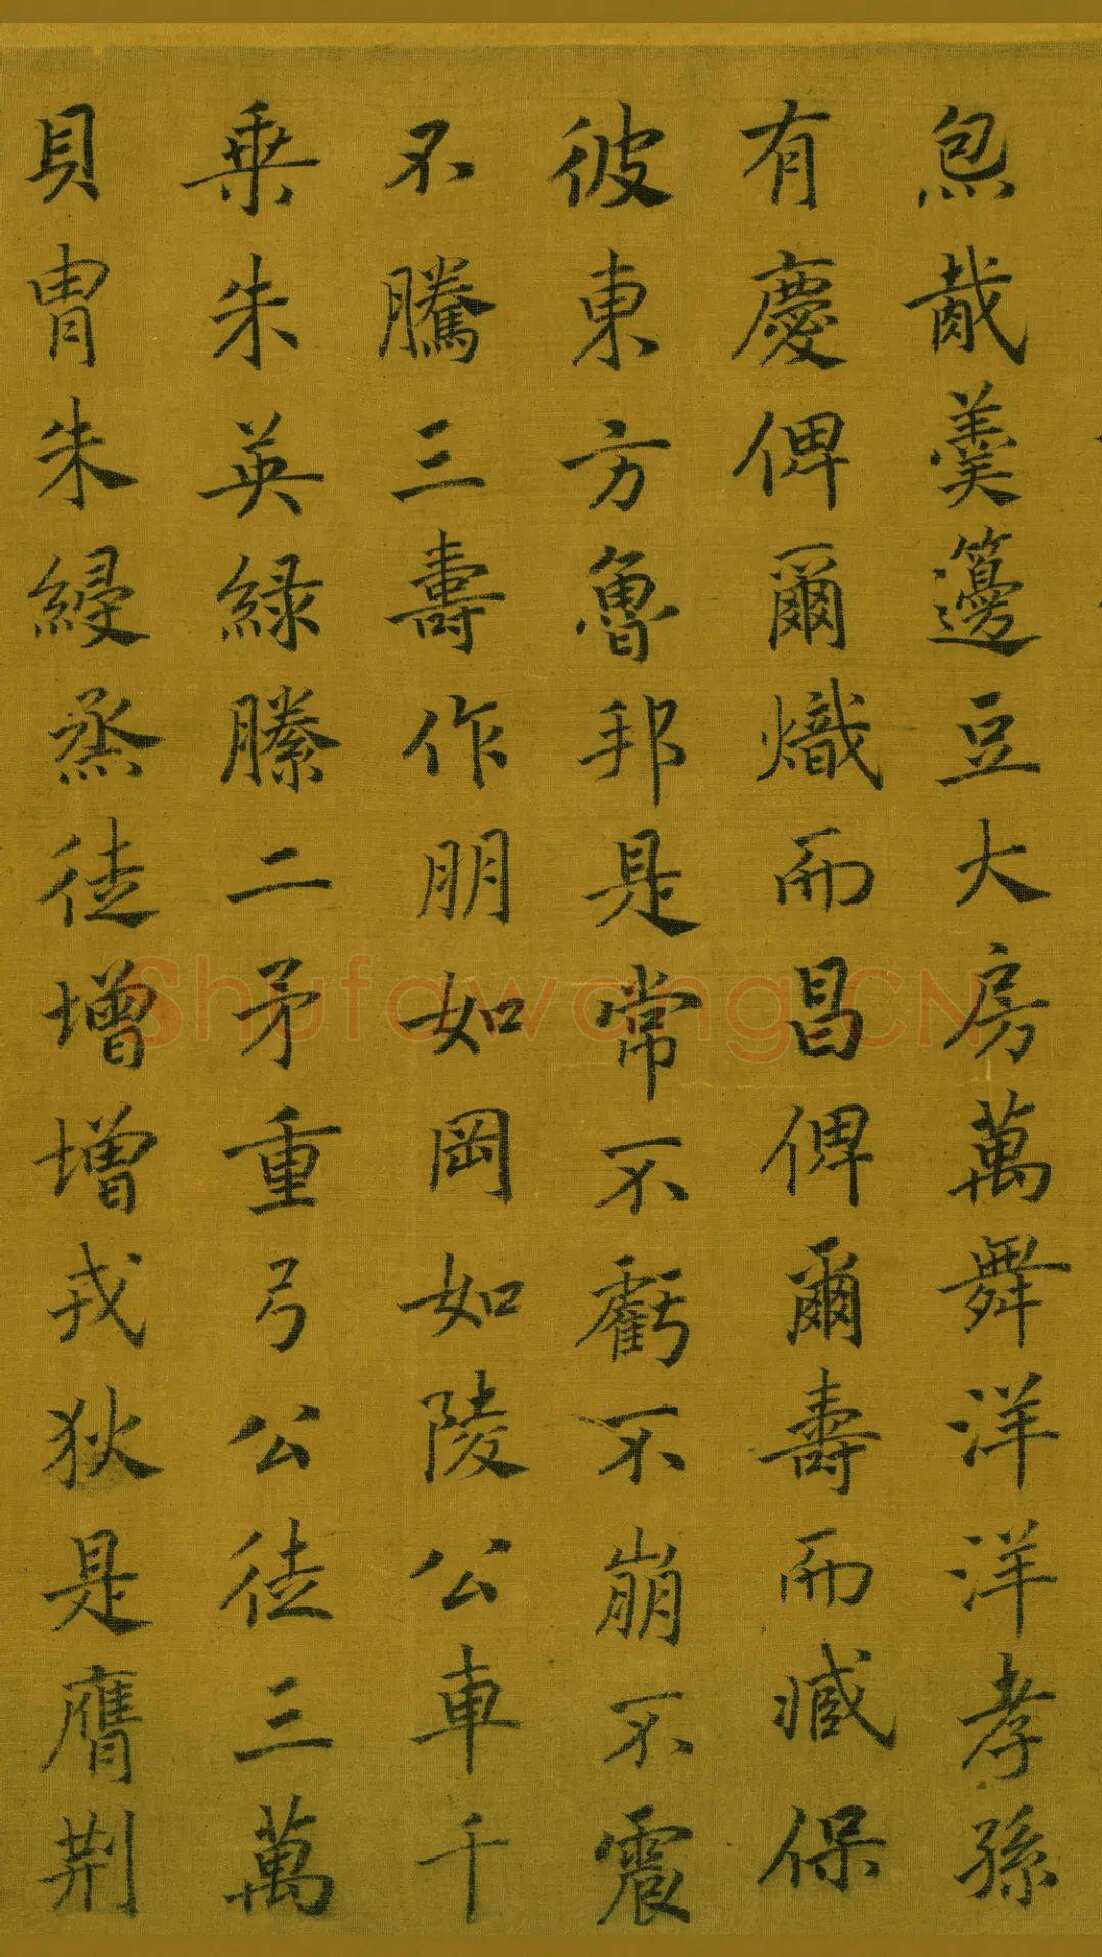 炰胾羹籩豆大房萬舞洋洋孝孫
有慶俾爾熾而昌俾爾壽而臧保
彼東方魯邦是常不虧不崩不震
不騰三壽作朋如岡如陵公車千
乗朱英緑縢二矛重弓公徒三萬
貝冑朱綅烝徒增增戎狄是膺荆
Shufawang.CN